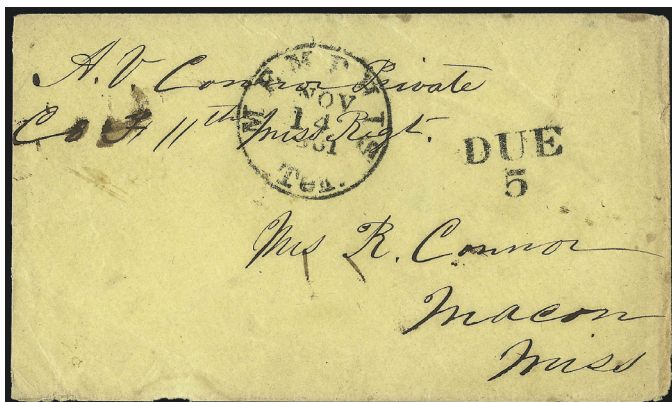 A. V Connor Private
Co F 11th Miss Regt.
MEMPHIS
NOV
14
1861
Ten.
DUE
5
Mrs R. Connor
Macon
Miss